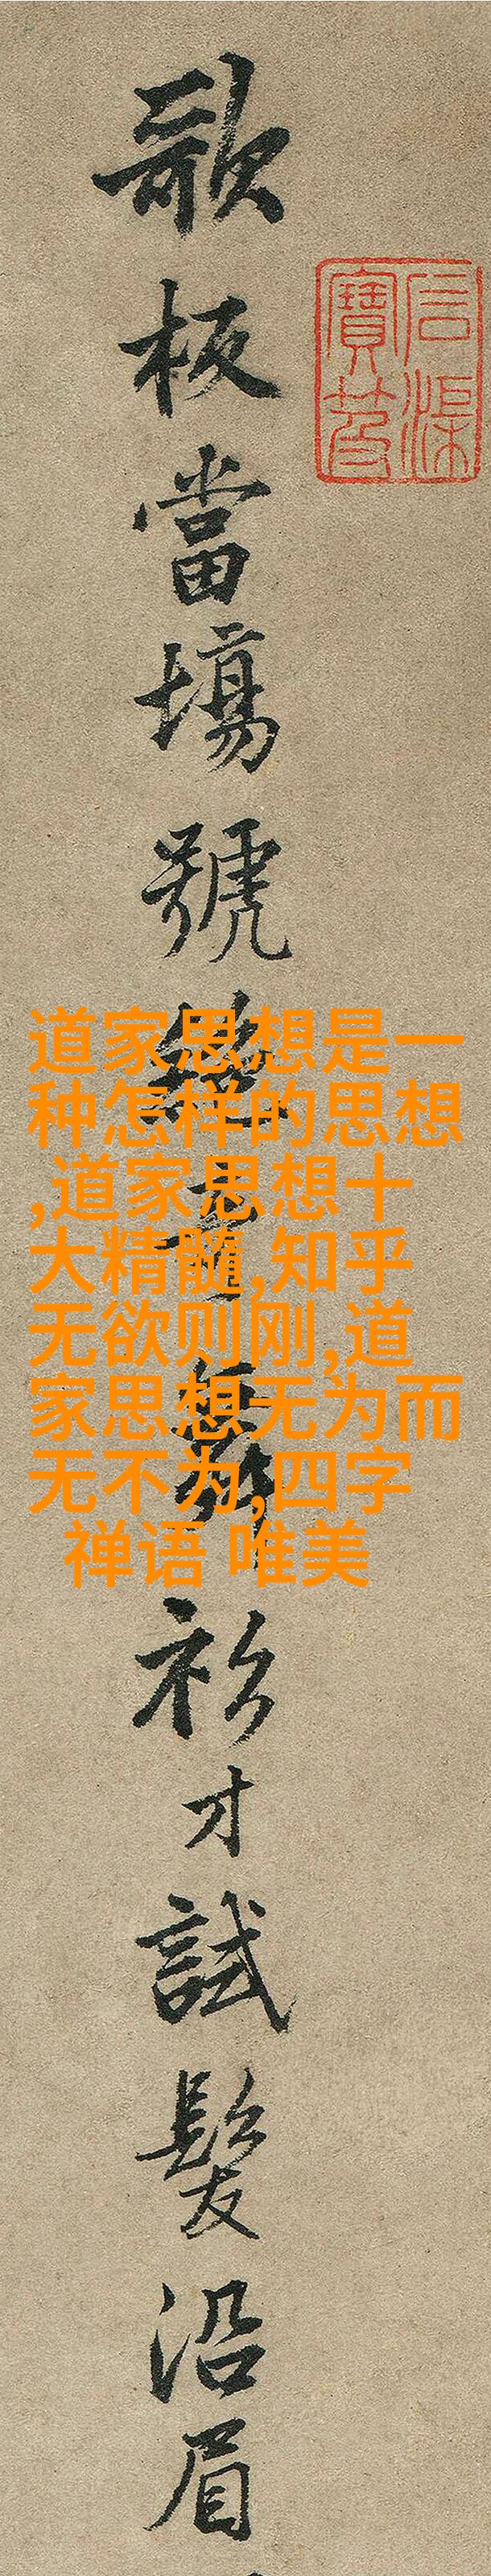 石渠
寶笈
歌板當場號絶奇舞衫才試髮沿眉
道家思想是一
种怎样的思想
,道家思想十
大精髓,知乎
无欲则刚,道
家思想无为而
无不为,四字
禅语 唯美